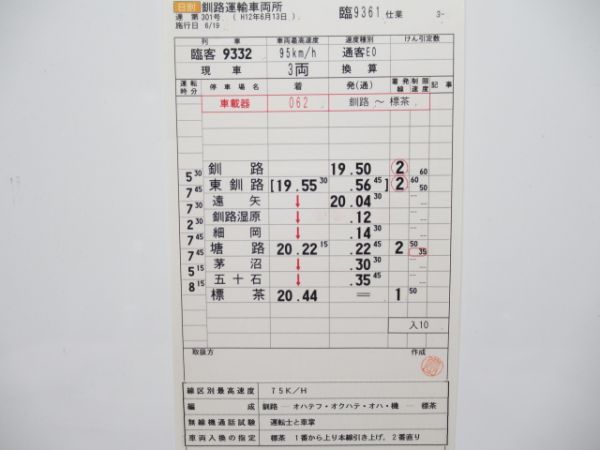 日割 釧路運輸車両所
達 第 301号 ( H12年6月13日 ) 臨9361 仕業 3-
施行日 6/19
列車 車両最高速度 速度種別 けん引定数
臨客 9332 95km/h 通客E0
現車 3両 換算
運転時分 停車場名 着 発(通) 着発線 制限速度 記事
車載器 062 釧路 ~ 標茶
釧路 19.50 2 60
5 30 東釧路 [19.55 30 .56 45 ] 2 60 50
7 45 遠矢 ↓ 20.04 30
7 30 釧路湿原 ↓ .12
2 30 細岡 ↓ .14 30
7 45 塘路 20.22 15 .22 45 2 50 35
7 45 茅沼 ↓ .30 30
5 15 五十石 ↓ .35 45
8 15 標茶 20.44 = 1 50
入10
取扱方 作成
線区別最高速度 75K/H
編成 釧路 ― オハテフ・オクハテ・オハ・機 ― 標茶
無線機通話試験 運転士と車掌
車両入換の指定 標茶 1番から上り本線引き上げ、2番直り